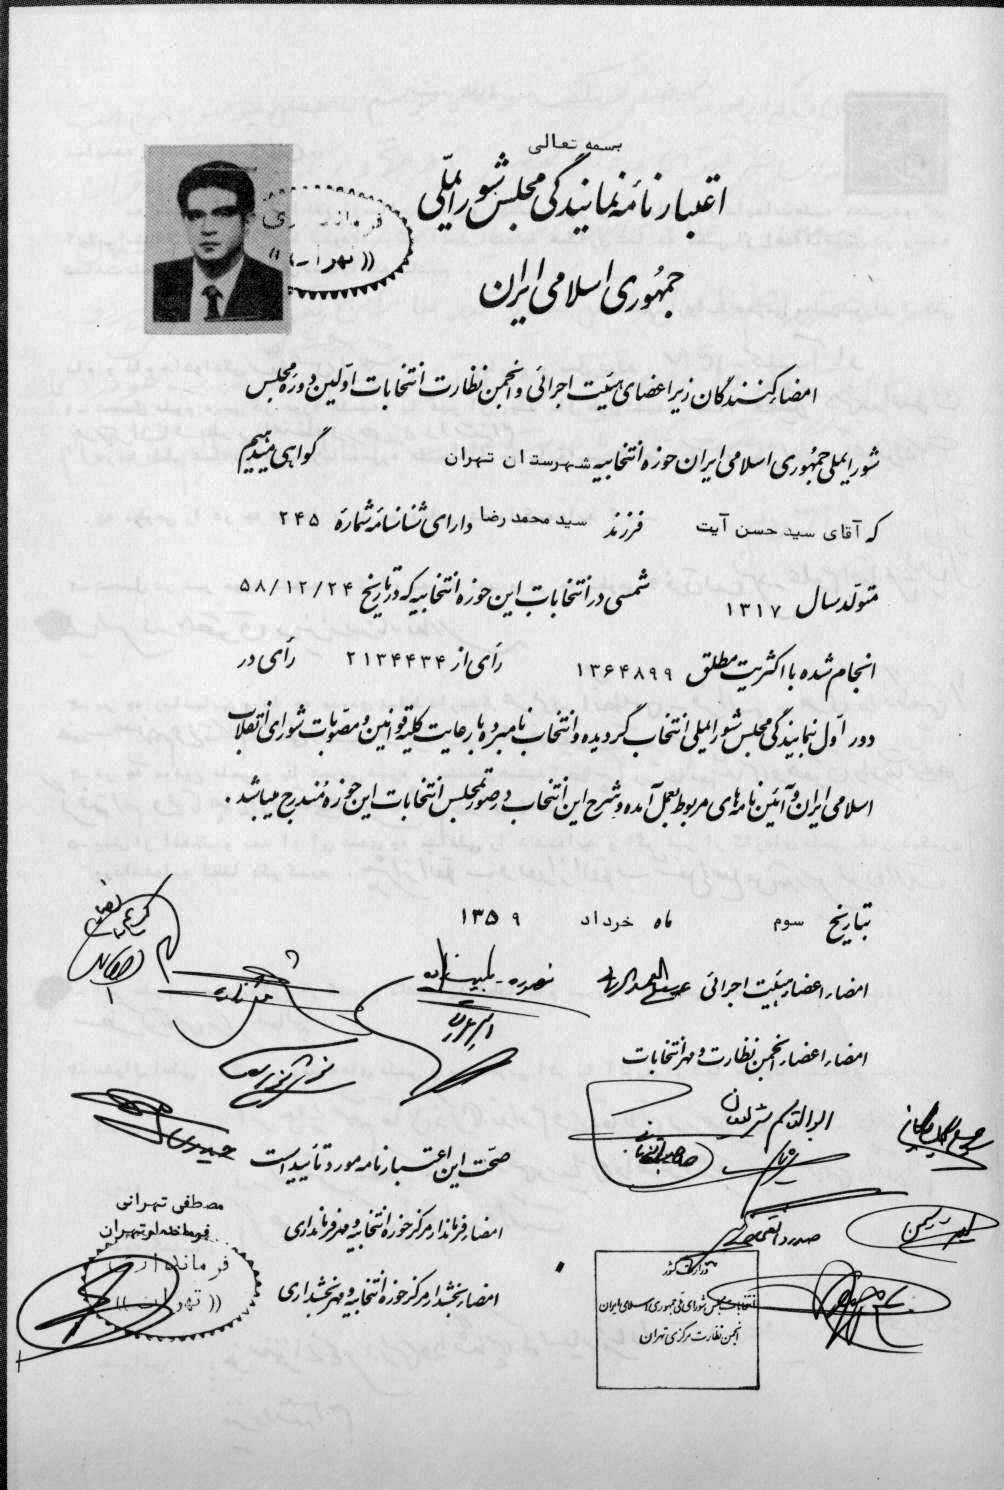 بسمه تعالی
اعتبارنامهٔ نمایندگی مجلس شورایملّی
جمهوری اسلامی ایران
فرمانداری
((تهران))
امضاء کنندگان زیر اعضای هیئت اجرائی و انجمن نظارت انتخابات اوّلین دوره مجلس
شورایملی جمهوری اسلامی ایران حوزه انتخابیه شهرستان تهران گواهی میدهیم
که آقای سید حسن آیت فرزند سید محمد رضا دارای شناسنامه شماره ۲۴۵
متولّد سال ۱۳۱۷ شمسی در انتخابات این حوزه انتخابیه که در تاریخ ۵۸/۱۲/۲۴
انجام شده با اکثریت مطلق ۱۳۶۴۸۹۹ رأی از ۲۱۳۴۴۳۴ رأی در
دور اوّل نمایندگی مجلس شورایملی انتخاب گردیده و انتخاب نامبرده با رعایت کلیه قوانین و مصوّبات شورای انقلاب
اسلامی ایران و آئین نامه‌های مربوط بعمل آمده و شرح این انتخاب در صورتمجلس انتخابات این حوزه مندرج میباشد.
بتاریخ سوم ماه خرداد ۱۳۵۹
امضاء اعضاء هیئت اجرائی
امضاء اعضاء انجمن نظارت و مهر انتخابات
صحّت این اعتبارنامه مورد تأیید است
مصطفی تهرانی
فرماندار تهران
امضاء فرماندار مرکز حوزه انتخابیه و مهر فرمانداری
فرمانداری
((تهران))
امضاء بخشدار مرکز حوزه انتخابیه و مهر بخشداری
وزارت کشور
انتخابات مجلس شورای ملی جمهوری اسلامی ایران
انجمن نظارت مرکزی تهران